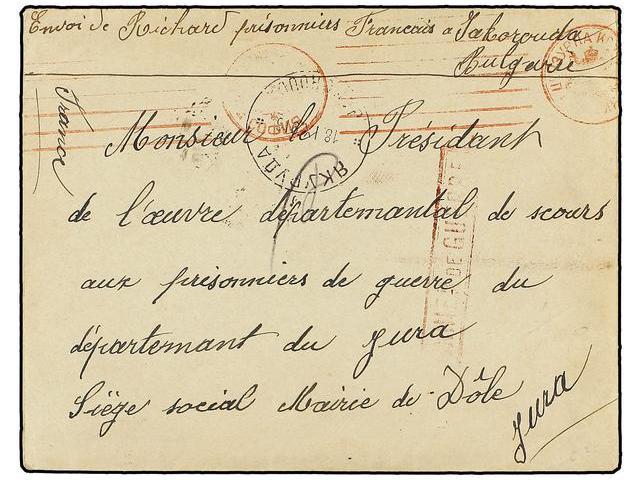 Envoi de Richard prisonniers Francais a Jakorouda
Bulgarie
France
Monsieur le Présidant
de l'œuvre départemantal de scours
aux prisonniers de guerre du
départemant du Jura
Siège social Mairie de Dôle
Jura
ЯКУРУДА
DE GUERRE